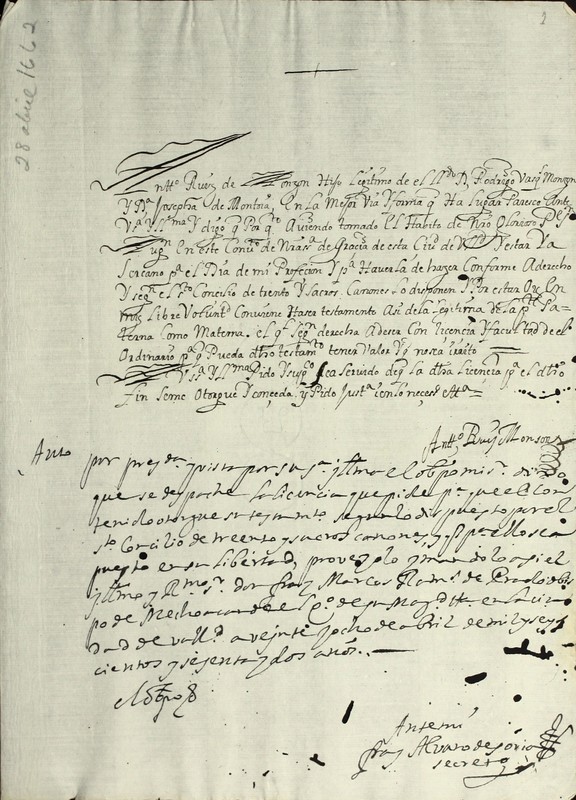 28 abril 1662
Antt.o Ruiz de Monzon Hijo Legitimo de el ll.do D. Rodrigo Vasq Monzon
Y D.a Josepha de Montoia, En La Mejor Via Y forma q Ha Lugar Paresco Ante
V.s.a Y ll.ma Y digo q Por q.to Aviendo tomado El Habito de Nro Glorioso P.e S.
Aug.n En este Conv.to de N.ra s.a de Gracia de esta Ciu.d de Vall.d Y estar Ya
Sercano p.a el Dia de mi Profecion Y p.a Haverla de hazer Conforme A derecho
Y seg.n el s.to Concilio de trento Y sacros Canones Lo disponen Y Por estar Oy En
mi Libre Volunt.d Conviene Haser testamento Asi de la Legitima de la p.te Pa-
terna Como Materna. el q.l seg.n derecho A de ser Con licencia Y facultad de el
Ordinario p.a q Pueda dho testam.to tener Valor Y q no sea irrito
A V.s.a Y ll.ma Pido Y sup.co sea servido de q La dha Licencia p.a el dho
Fin se me Otorgue Y conceda. Y Pido Just.a en lo neces.o Ett.a
Antt.o Ruiz Monson
Auto
por pres.da y vista por su s.a yll.ma el obpo mi s.r dixo
que se despache la licencia que pide p.a que el con
tenido otorgue su testam.to segun lo dispuesto por el
s.to Concilio de trento y sacros canones y p.a ello sea
puesto en su libertad, proveyolo y mandolo assi el
yllmo y R.mo s.r don fray Marcos Ramz de Prado obis
po de Mechoacan del Cons.o de su Mag.d ett.a en la ciu
dad de vall.d a veinte y ocho de abril de mil y seis
cientos y sesenta y dos años.
el obispo
Ante mi
fray Alvaro de
secret.o